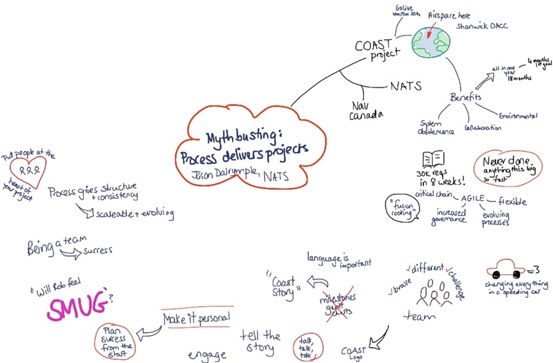 Airspace here
Shanwick OACC
COAST
project
NATS
Nav
Canada
all in one
year
18 months
Benefits
System
obsolescence
Collaboration
Environmental
Mythbusting:
Process delivers projects
Jason Dalrymple, NATS
Put people at the
heart of your
project
Process gives structure
+ consistency
scaleable + evolving
Being a team
success
"Will Rob feel
SMUG"?
Plan
success
from the
start
Make it personal
engage
tell the
story
talk,
talk,
talk
language is
important
"Coast
Story"
milestones
COAST
Logo
brave
different
challenging
team
30K reqs
in 8 weeks!
Never done
anything this big
so "fast"
critical chain
AGILE
flexible
"fusion
cooking"
increased
governance
evolving
processes
= 3
changing everything
in a speeding car